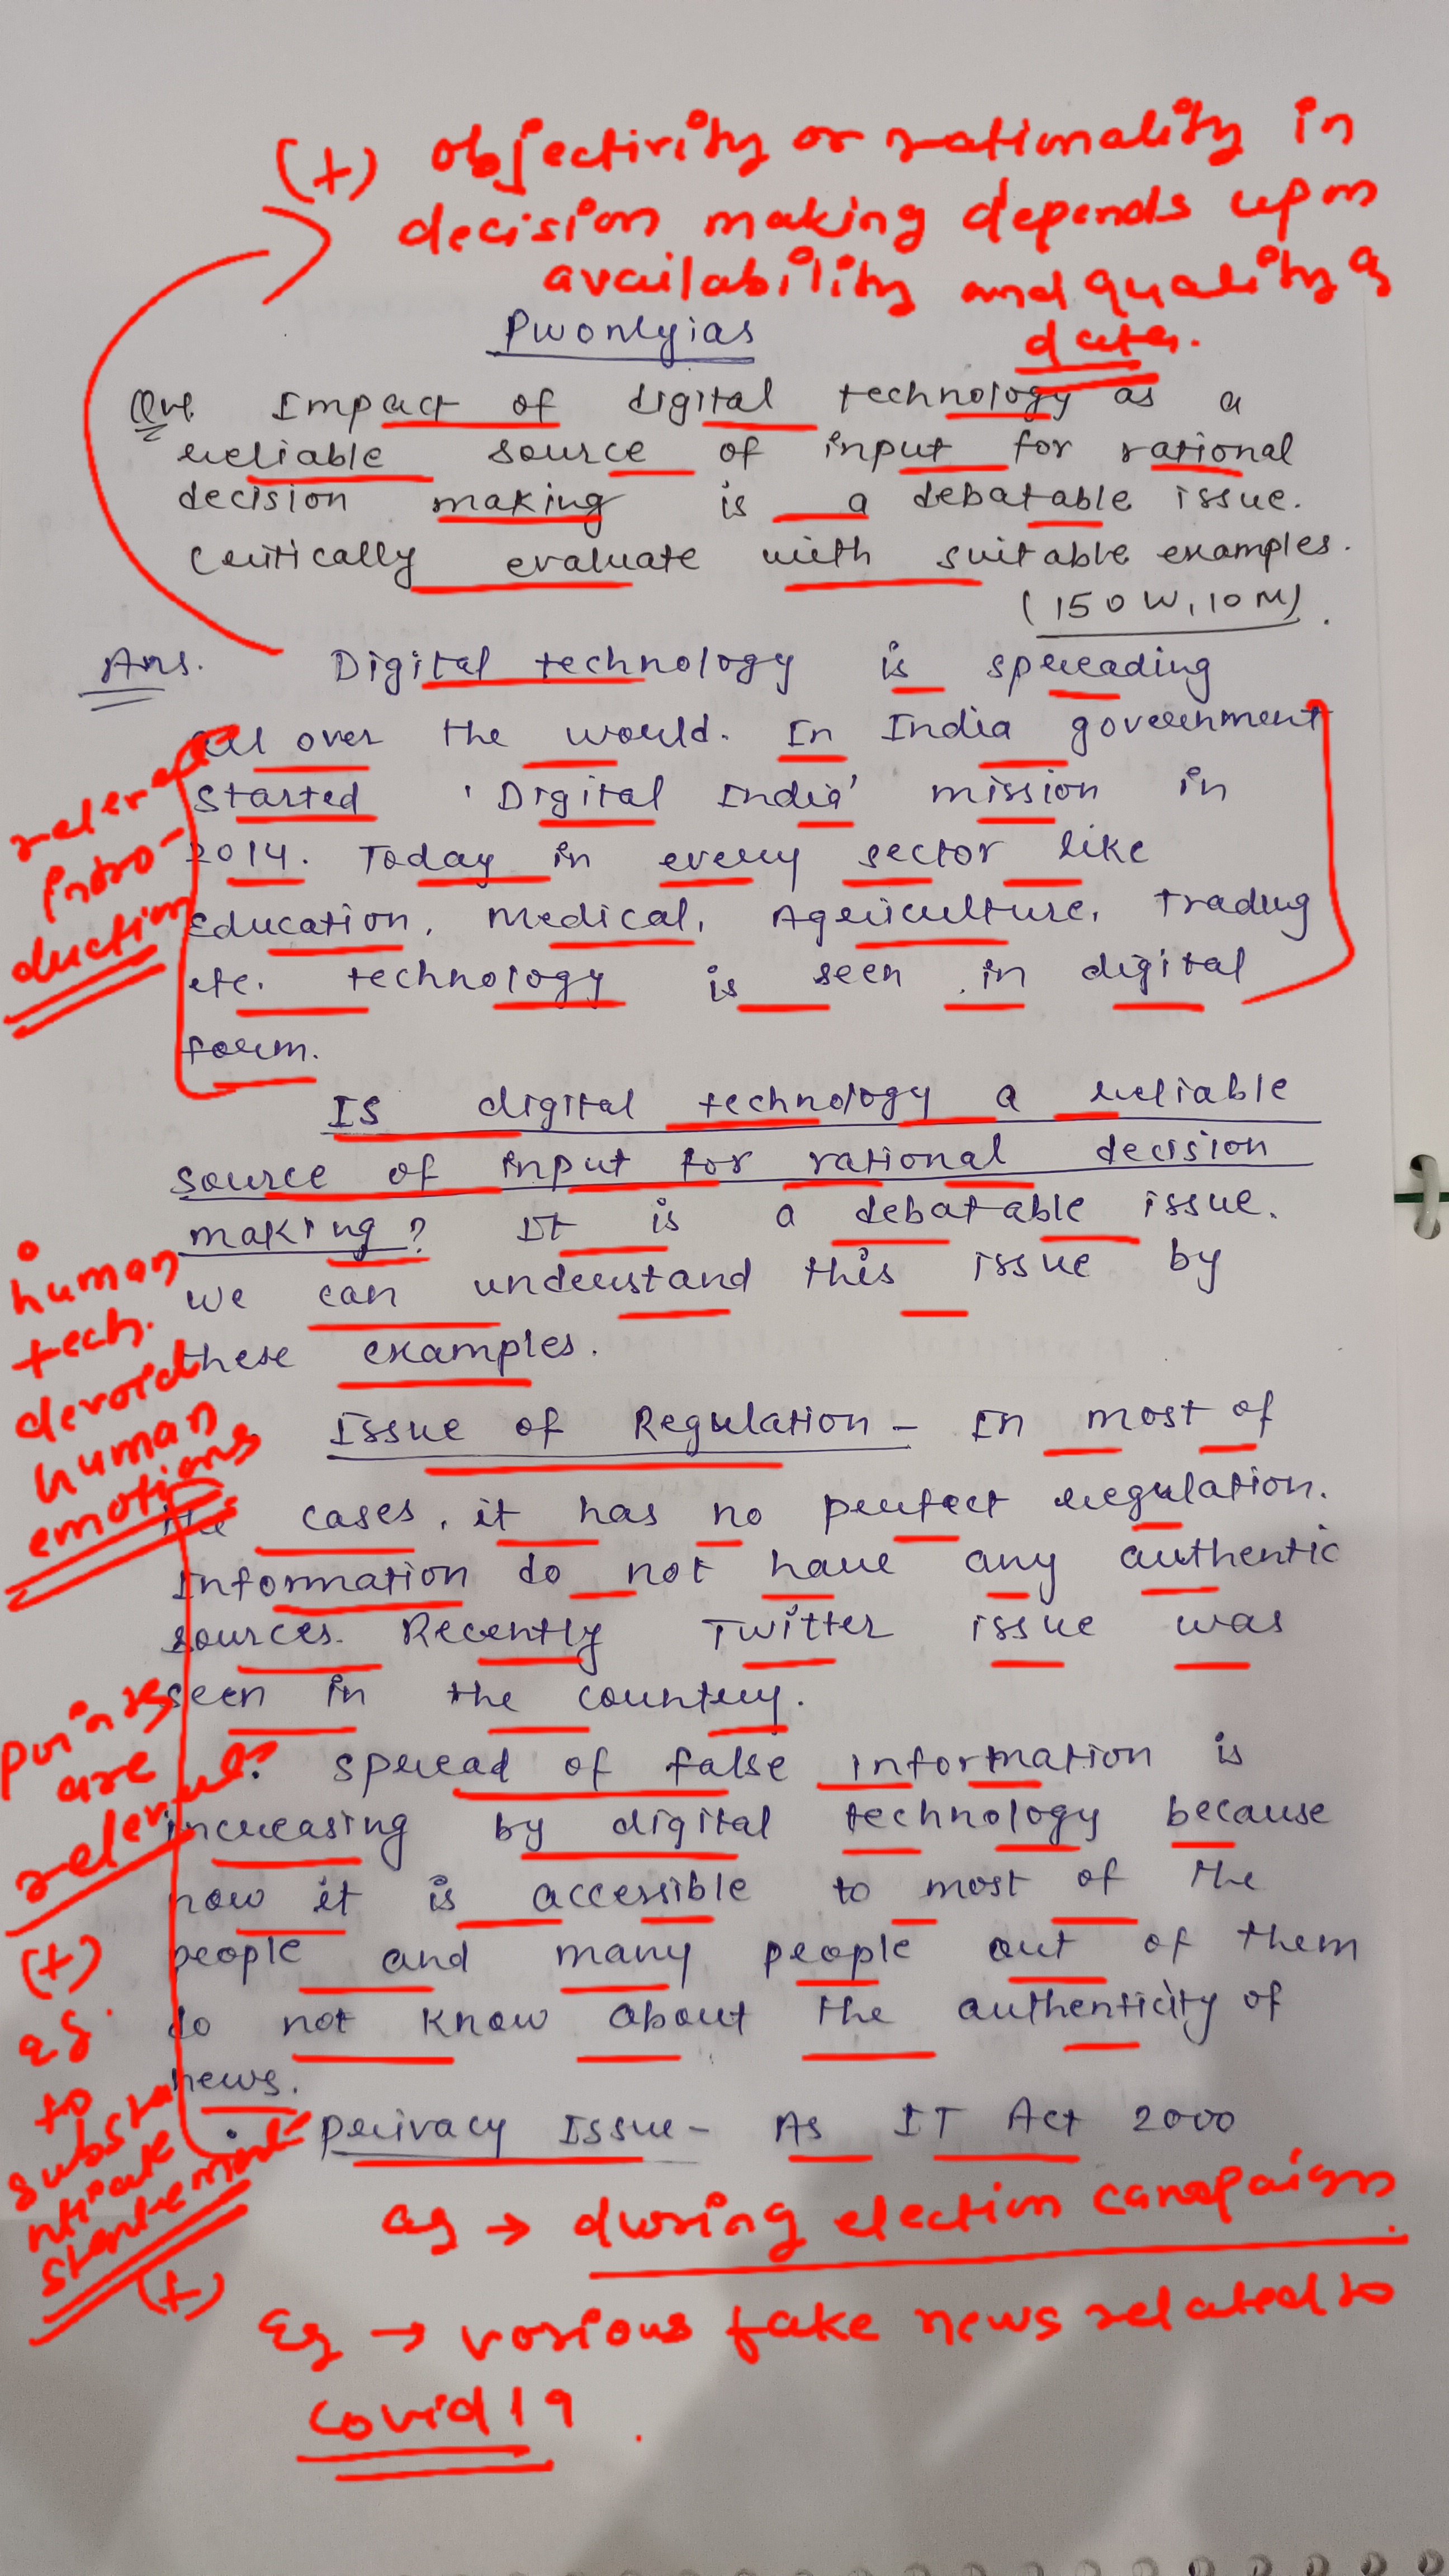 (+) objectivity or rationality in
decision making depends upon
availability and quality of
data.
Pwonlyias
Que. Impact of digital technology as a
reliable source of input for rational
decision making is a debatable issue.
Critically evaluate with suitable examples.
(150W, 10M).
Ans. Digital technology is spreading
all over the world. In India government
started 'Digital India' mission in
2014. Today in every sector like
Education, Medical, Agriculture, Trading
etc. technology is seen in digital
form.
relevant
intro-
duction
Is digital technology a reliable
source of input for rational decision
making? It is a debatable issue.
we can understand this issue by
these examples.
human
tech.
devoid
human
emotions
Issue of Regulation - In most of
the cases, it has no perfect regulation.
Information do not have any authentic
sources. Recently Twitter issue was
seen in the country.
Spread of false information is
increasing by digital technology because
now it is accessible to most of the
people and many people out of them
do not know about the authenticity of
news.
points
are
relevant
(+)
eg.
to
substa
ntiate
statement
. Privacy Issue - As IT Act 2000
eg → during election campaign
(+)
Eg → various fake news related to
covid 19.